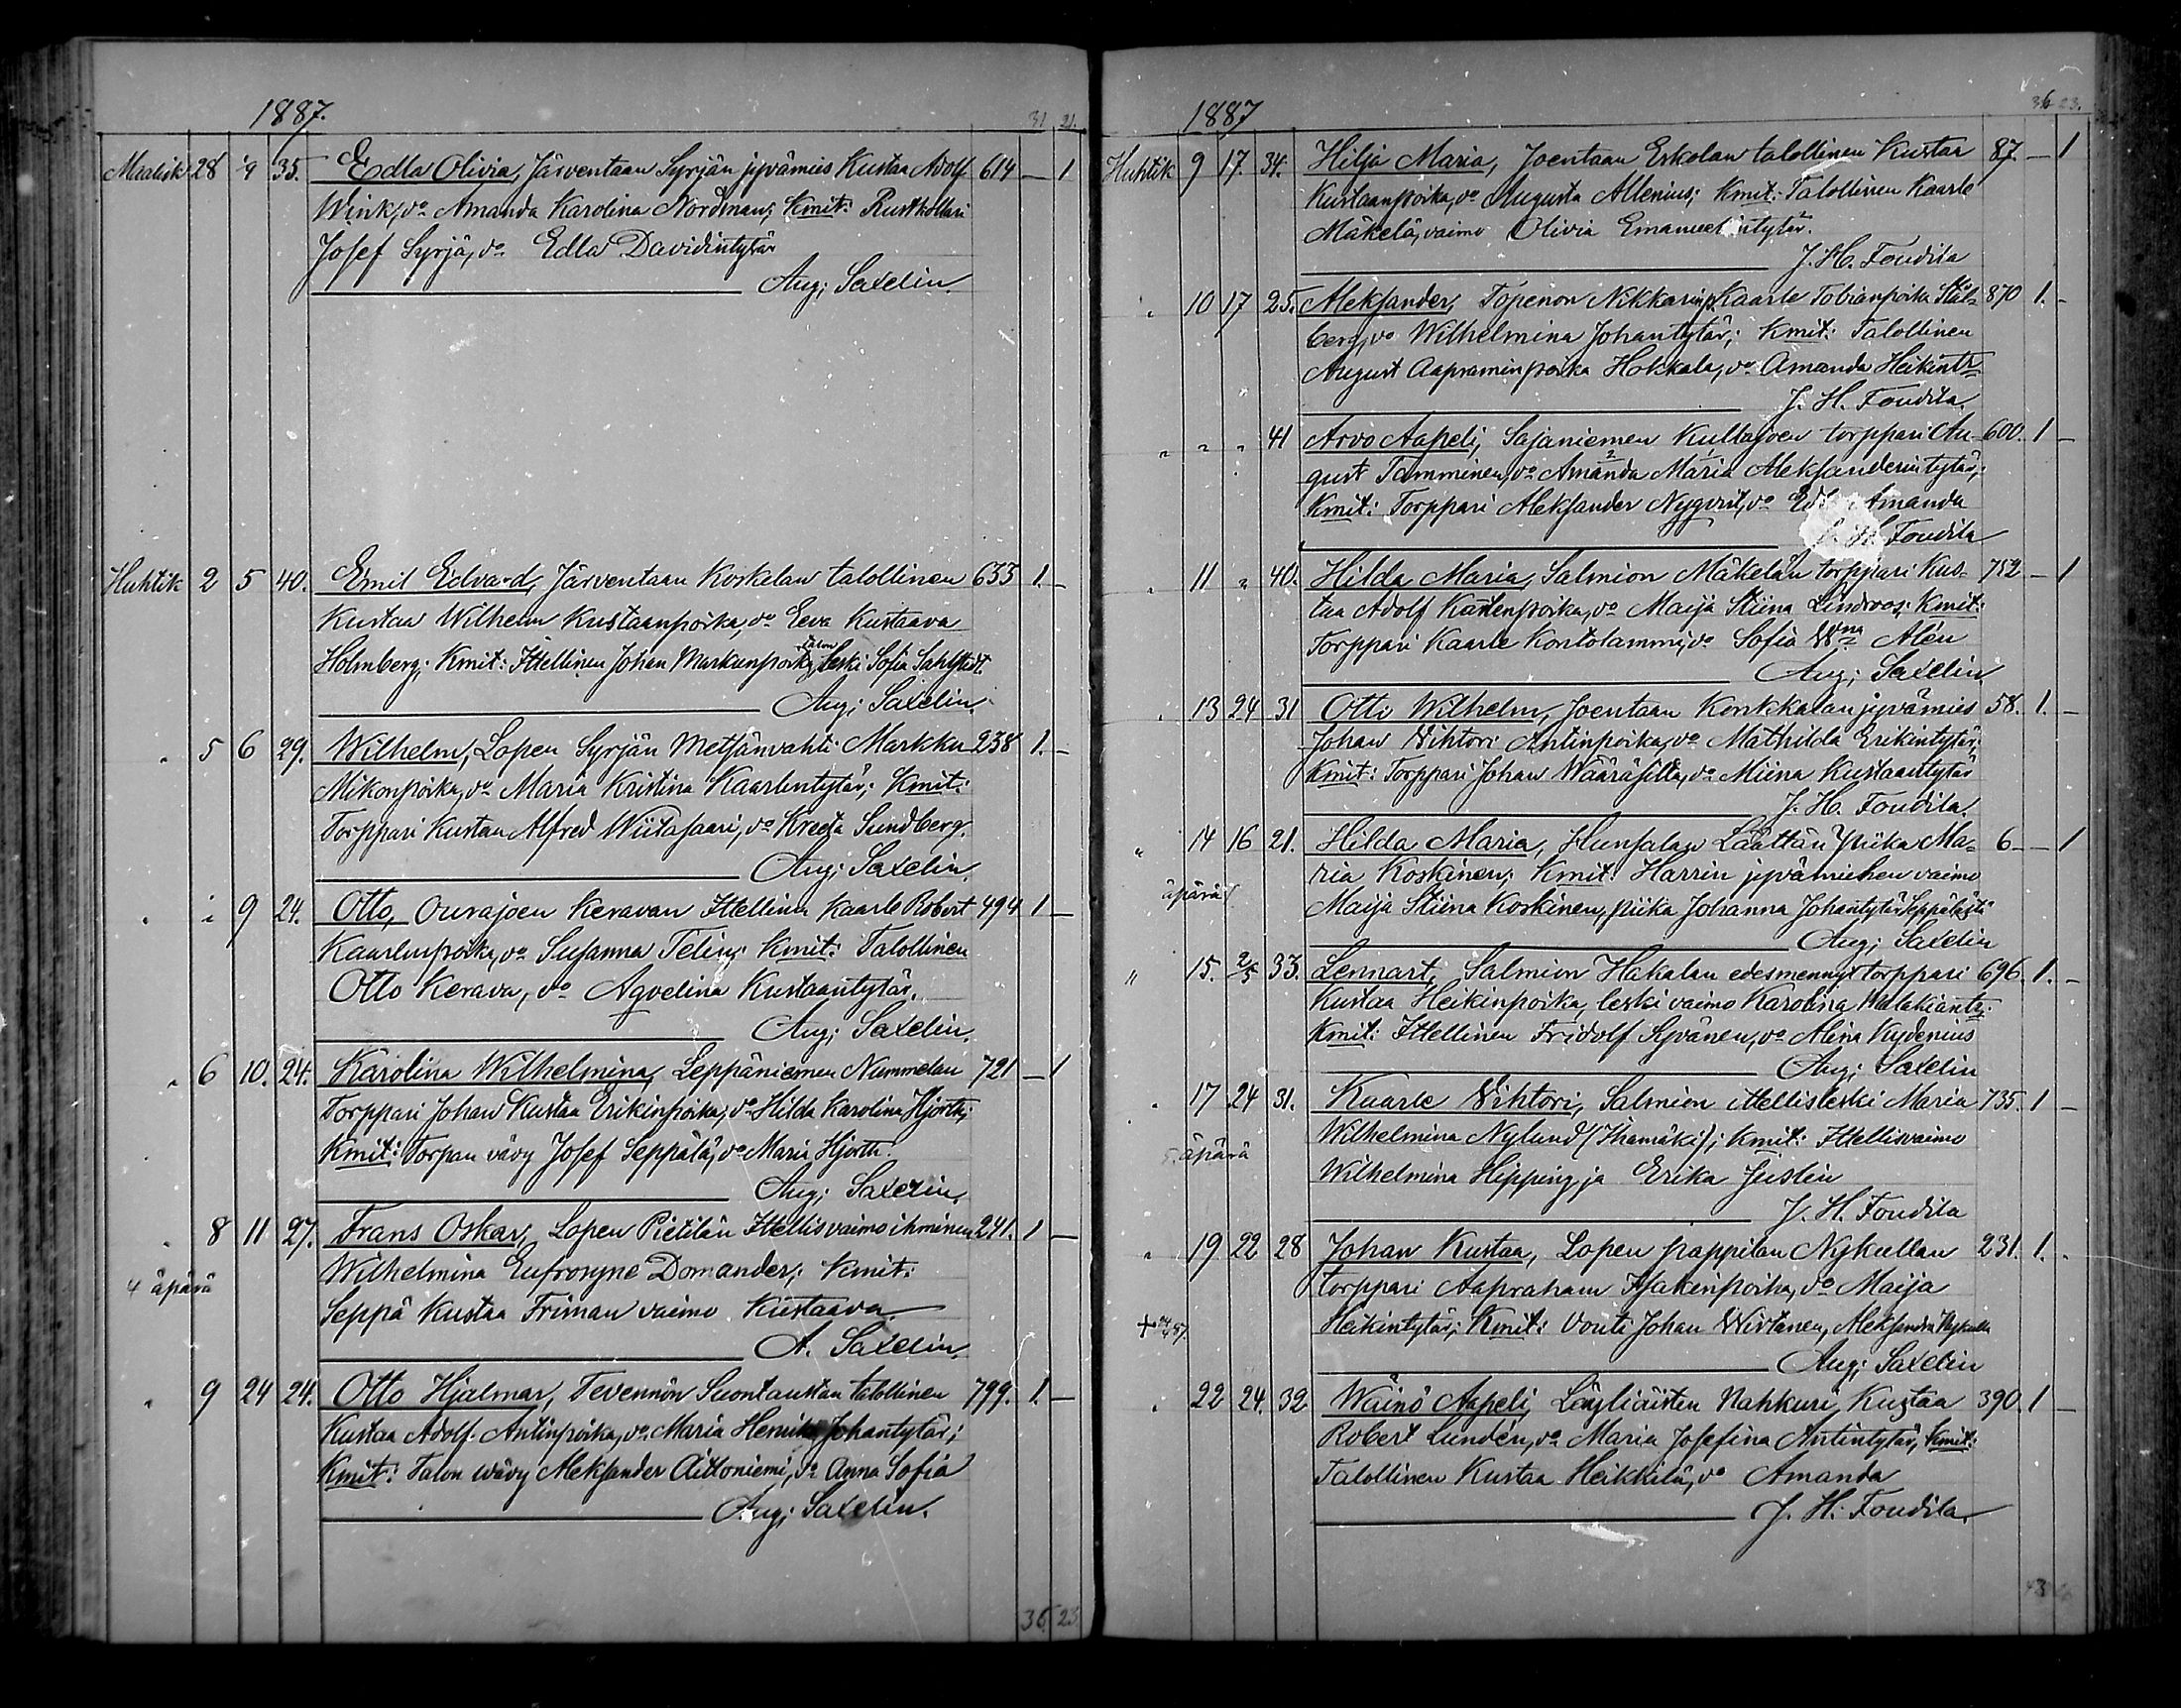 1887.
31 21.
Maalisk 28 i/4 35. Edla Olivia, Järventaan Syrjän jyvämies Kustaa Adolf 614 — 1
Wink, vo Amanda Karolina Nordman; Kmit: Rusthollari
Josef Syrjä, vo Edla Davidintytär
Aug; Saxelin.
Huhtik 2 5 40. Emil Edvard, Järventaan Koskelan talollinen 633 1. —
Kustaa Wilhelm Kustaanpoika, vo Eeva Kustaava
Holmberg; Kmit: Ittellinen Johan Markunpoika, talon leski Sofia Sahlstedt.
Aug; Saxelin.
" 5 6 29. Wilhelm, Lopen Syrjän Metsänvahti Markku 238 1. —
Mikonpoika, vo Maria Kristina Kaarlentytär; Kmit:
Torppari Kustaa Alfred Wiitasaari, vo Kreeta Sundberg.
Aug; Saxelin.
" " 9 24. Otto, Ourajoen Keravan Ittellinen Kaarle Robert 494 1 —
Kaarlenpoika, vo Susanna Telin; Kmit: Talollinen
Otto Kerava, vo Aqvelina Kustaantytär.
Aug; Saxelin.
" 6 10. 24. Karolina Wilhelmina, Leppäniemen Nummelan 721 — 1
Torppari Johan Kustaa Erikinpoika, vo Hilda Karolina Hjorth;
Kmit: Torpan vävy Josef Seppälä, vo Maria Hjorth.
Aug; Saxelin.
" 8 11 27. Frans Oskar, Lopen Pietilän Ittellisvaimoihminen 241. 1 —
4 äpärä Wilhelmina Eufrosyne Domander; Kmit:
Seppä Kustaa Friman vaimo Kustaava
A. Saxelin.
" 9 24 24. Otto Hjalmar, Tevennön Suontaustan talollinen 799. 1. —
Kustaa Adolf Antinpoika, vo Maria Henrika Johantytär;
Kmit: Talon wävy Aleksander Aittoniemi, vo Anna Sofia
Aug; Saxelin.
36 23
1887
36 23.
Huhtik 9 17. 34. Hilja Maria, Joentaan Eskolan talollinen Kustaa 87. — 1
Kustaanpoika, vo Augusta Allenius; Kmit: Talollinen Kaarle
Mäkelä, vaimo Olivia Emanuelintytär.
J. H. Foudila
" 10 17 25. Aleksander, Topenon Nikkarin p. Kaarle Tobianpoika Stål- 870 1. —
berg, vo Wilhelmina Johantytär; Kmit: Talollinen
August Aapraminpoika Hokkala, vo Amanda Heikintr
J. H. Foudila.
" " " 41 Arvo Aapeli, Sajaniemen Kultajoen torppari Au- 600. 1 —
gust Tamminen, vo Amanda Maria Aleksanderintytär;
Kmit: Torppari Aleksander Nyqvist, vo Edla Amanda
J. H. Foudila
" 11 " 40. Hilda Maria, Salmion Mäkelän torppari Kus- 752 — 1
taa Adolf Kaarlenpoika, vo Maija Stiina Lindroos; Kmit:
Torppari Kaarle Kontolammi, vo Sofia Wna Alén
Aug; Saxelin.
" 13 24 31 Otto Wilhelm, Joentaan Konkkalan jyvämies 58. 1. —
Johan Wihtori Antinpoika, vo Mathilda Erikintytär;
Kmit: Torppari Johan Wääräsilta, vo Miina Kustaantytär
J. H. Foudila.
" 14 16 21. Hilda Maria, Hunsalan Läättän Piika Ma- 6 — 1
äpärä ria Koskinen; Kmit: Harrin jyvämiehen vaimo
Maija Stiina Koskinen, piika Johanna Johantytär Seppälästä
Aug; Saxelin
" 15. 2/5 33. Lennart, Salmion Hakalan edesmennyt torppari 696. 1. —
Kustaa Heikinpoika, leski vaimo Karolina Malakianty;
Kmit: Ittellinen Fridolf Syvänen, vo Alina Kydenius
Aug; Saxelin
" 17 24 31. Kaarle Wihtori, Salmion ittellisleski Maria 735. 1 —
5. äpärä Wilhelmina Nylund (Ihamäki); Kmit: Ittellisvaimo
Wilhelmina Hipping ja Erika Juslin
J. H. Foudila
" 19. 22 28 Johan Kustaa, Lopen pappilan Nykullan 231. 1. .
torppari Aapraham Isakinpoika, vo Maija
Heikintytär; Kmit: Vouti Johan Wirtanen, Aleksandra Nykulla
Aug; Saxelin
" 22 24. 32 Wäinö Aapeli, Läyliäisten Nahkuri Kustaa 390. 1 —
Robert Lundén, vo Maria Josefina Antintytär, Kmit:
Talollinen Kustaa Heikkilä, vo Amanda
J. H. Foudila.